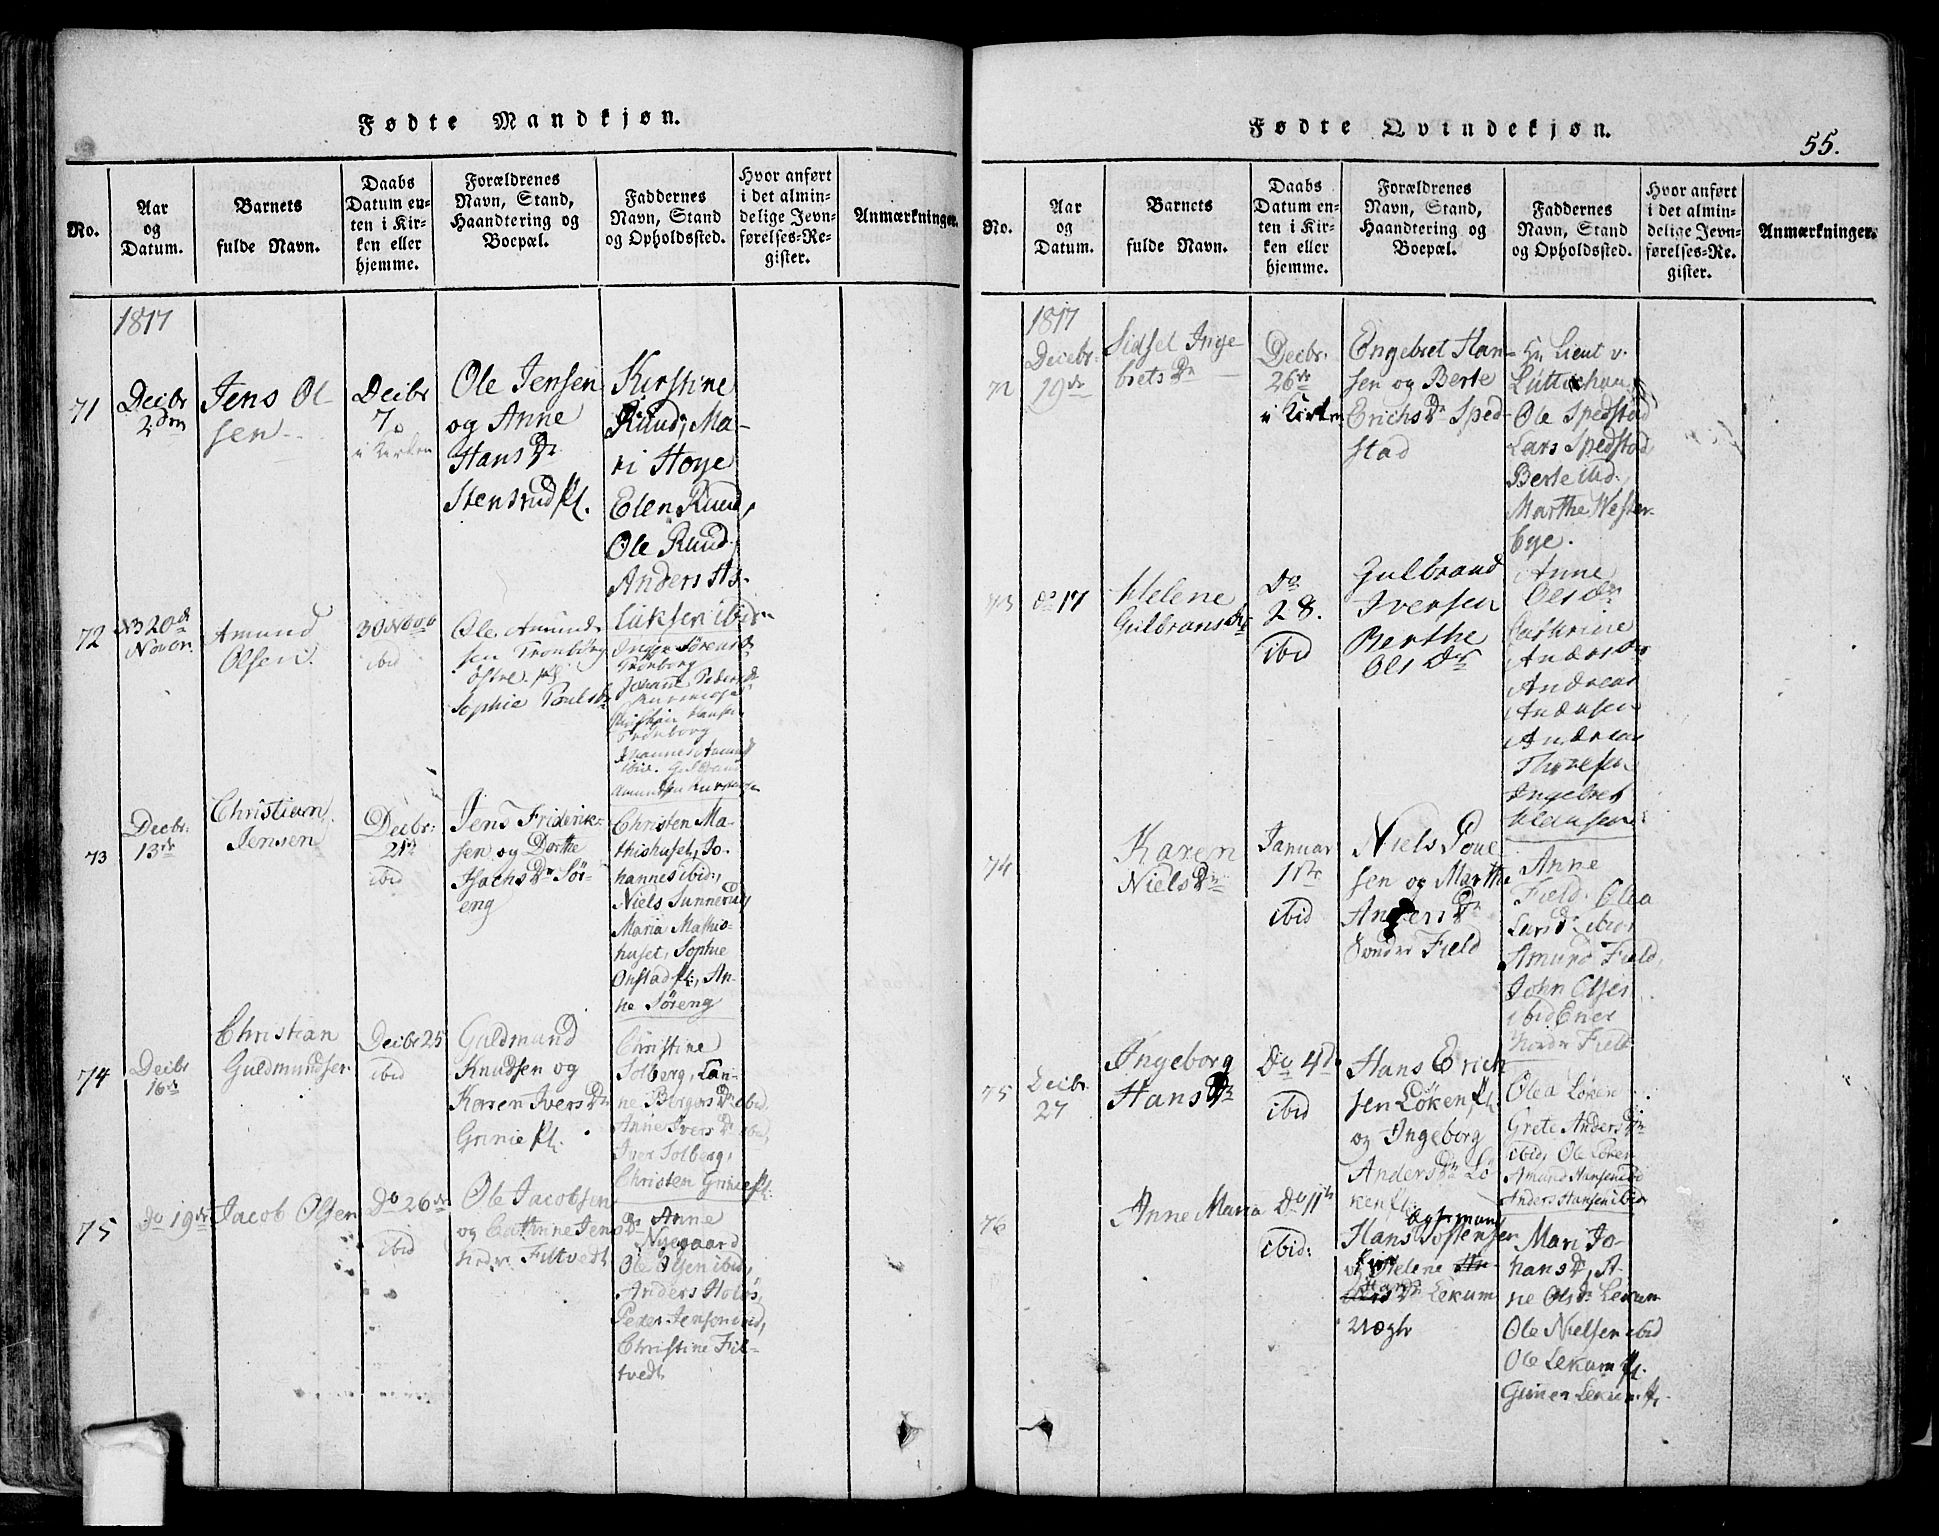 Fødte Mandkjøn.
No.
Aar
og
Datum.
Barnets
fulde Navn.
Daabs
Datum en-
ten i Kir-
ken eller
hjemme.
Forældrenes
Navn, Stand,
Haandtering og
Boepæl.
Faddernes
Navn, Stand
og Opholdssted.
Hvor anført
i det almin-
delige Jevn-
førelses-Re-
gister.
Anmærkninger.
1817
71
Decbr
2den
Jens Ol
sen
Deibr
7.
i Kirken
Ole Jensen
og Anne
Hans Dr
Stensrud Pl.
Kirstine
Ruud, Ma-
ri Hoye
Elen Ruud,
Ole Ruud
Anders As-
laksen ibid
72
N3 20de
Novbr
Amund
Olsen
30 Novb
ibid
Ole Amund-
sen Tronborg
østre
Sophie Poulsdr
Inger Sørensdr
Tronborg
Johanne Pedersdr
Christian Hansen
Tronborg
Johannes Amund
ibid.
Amundsen
73
Decbr:
13de
Christian
Jensen
Decbr:
21de
ibid
Jens Friderik-
sen og Dorthe
Isachs Dr Sør-
eng
Christen Ma-
thishuset, Jo-
hannes ibid:,
Niels Sunnerud
Maria Mathis-
huset, Sophie
Onstad Pl:, An-
ne Søreng
74
Deibr
16de
Christian
Guldmundsen
Deibr 25
ibid
Guldmund
Knudsen og
Karen Ivers Dr
Grinie Pl.
Christine
Solberg, Lan-
ne Børgers Dr ibid,
Anne Ivers Dr ibid,
Iver Solberg,
Christen Grinie Pl.
75
Do 19de
Jacob Olsen
Do 26de
ibid
Ole Jacobsen
og Cathrine Jens Dr
nordre Filtvedt
Anne
Nyegaard
Ole Olsen ibid,
Anders Holøs,
Peder Jenson ibid,
Christine Fil-
tvedt
Fødte Qvindekjøn.
55.
No.
Aar
og
Datum.
Barnets
fulde Navn.
Daabs
Datum en-
ten i Kir-
ken eller
hjemme.
Forældrenes
Navn, Stand,
Haandtering og
Boepæl.
Faddernes
Navn, Stand
og Opholdssted.
Hvor anført
i det almin-
delige Jevn-
førelses-Re-
gister.
Anmærkninger.
1817
72
Decebr:
19de
Sidsel Inge
brets Dr
Decbr:
26de
i Kirken
Engebret Han-
sen og Berte
Erichs Dr Sped-
stad
Hr Lieut v.
Lüttichau
Ole Spedstad
Lars Spedstad
Berte ibid.
Marthe Wester-
bye.
73
do 17
Helene
Gulbrans Dr
Do
28.
ibid
Gulbrand
Iversen
Berthe
Ols Dr
Anne
Ols Dr
Cathrine
Anders Dr
Andreas
Andersen
Andreas
Thoresen
Ingebret
Hansen
74
Karen
Niels Dr
Januar
1ste
ibid
Niels Poul
sen og Marthe
Anders Dr
Sønder Field
Anne
Field. Olea
Lars Dr ibid,
Amund Field,
John Olsen
ibid Erier
Nordr Field
75
Decbr.
27
Ingeborg
Hans Dr
Do 4de
ibid
Hans Erich
sen Løken Pl.
og Ingeborg
Anders Dr Lø-
ken Pl.
Olea Løken
Grete Anders Dr
ibid, Ole Løken
Amund Hansen ibid
Anders Hansen ibid
76
Anne Maria
Do 11te
ibid:
Hans Tostensen
og Helene
Lekum
uægte
Mari Jo-
hans Dr, A-
ne Olsdr Lekum
Ole Nielsen ibid
Ole Lekum Pl.
Gunner Lekum Pl.